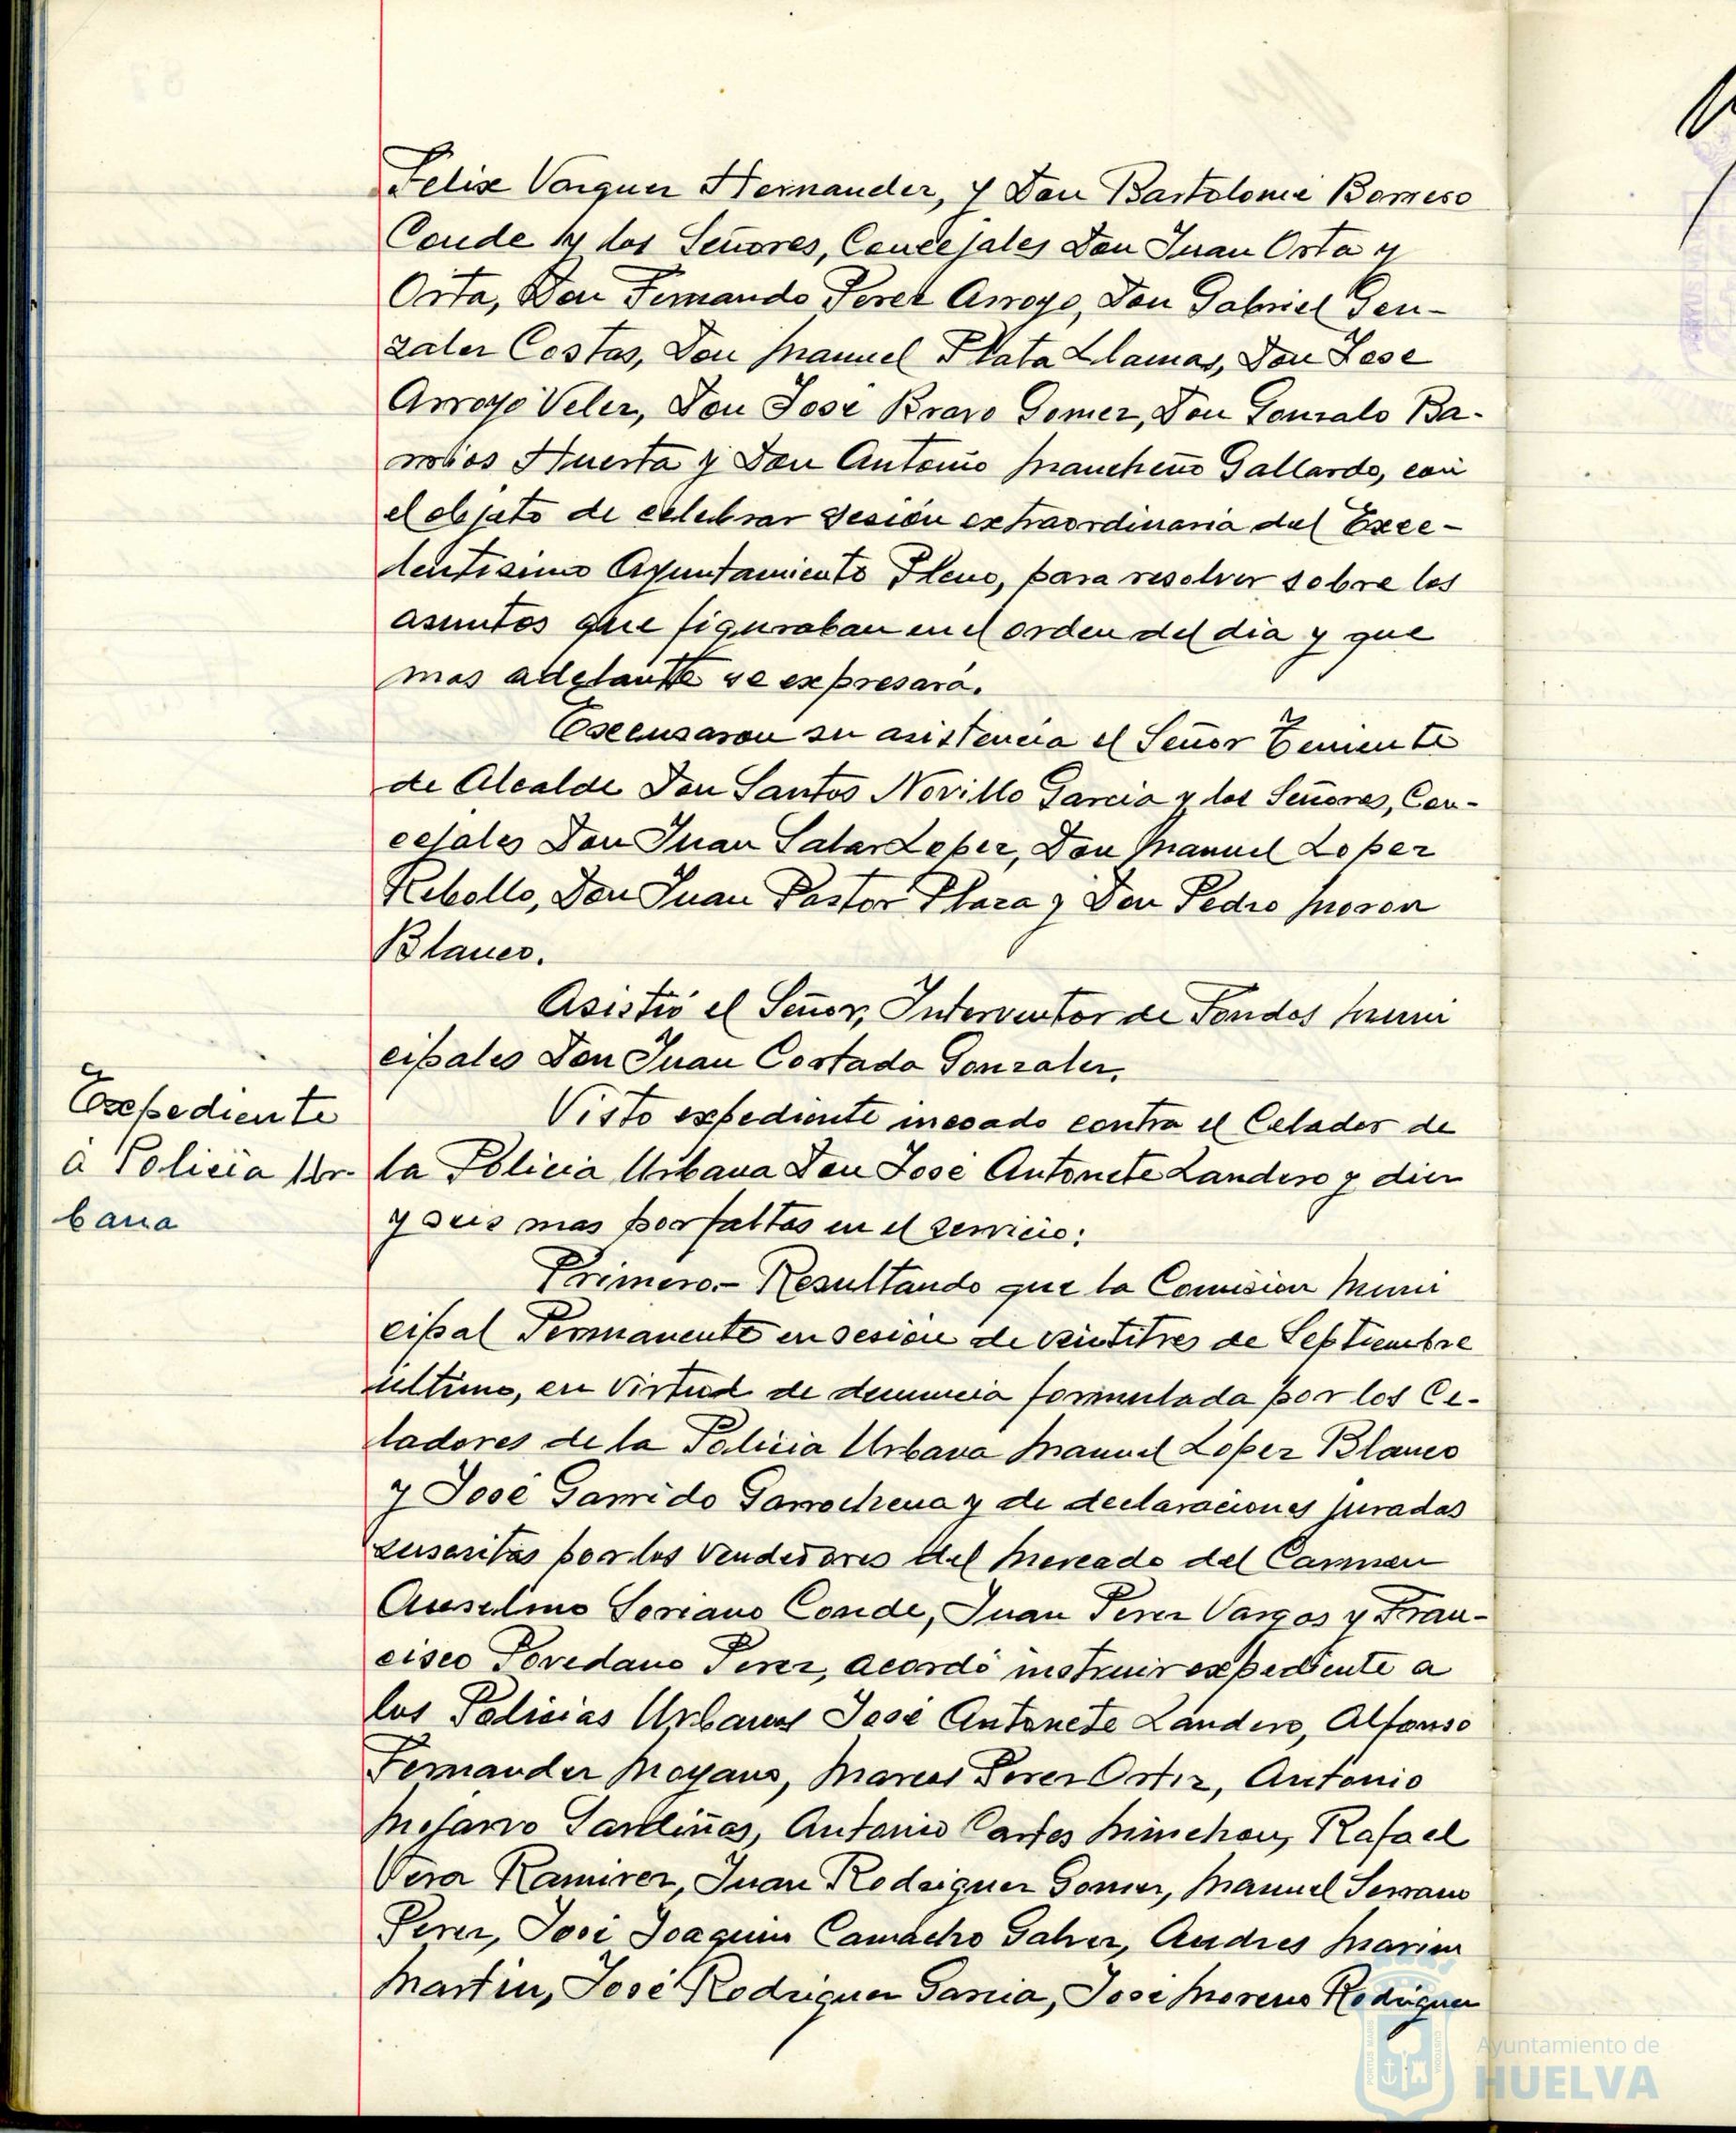 Felix Vazquez Hernandez, y Don Bartolome Borrero
Conde y los Señores, Concejales Don Juan Orta y
Orta, Don Fernando Perez Arroyo, Don Gabriel Gon-
zalez Costas, Don Manuel Plata Llamas, Don Jose
Arroyo Velez, Don José Bravo Gomez, Don Gonzalo Ba-
rrios Huerta y Don Antonio Mancheño Gallardo, con
el objeto de celebrar sesión extraordinaria del Exce-
lentisimo Ayuntamiento Pleno, para resolver sobre los
asuntos que figuraban en el orden del dia y que
mas adelante se expresará.
Excusaron su asistencia el Señor Teniente
de Alcalde Don Santos Novillo Garcia y los Señores, Con-
cejales Don Juan Salas Lopez, Don Manuel Lopez
Rebollo, Don Juan Pastor Plaza y Don Pedro Moron
Blanco.
Asistió el Señor, Interventor de Fondos Muni
cipales Don Juan Costado Gonzalez.
Expediente
à Policia Ur-
bana
Visto expediente incoado contra el Celador de
la Policia Urbana Don José Antonete Landero y diez
y seis mas por faltas en el servicio:
Primero.- Resultando que la Comision Muni
cipal Permanente en sesion de veintitres de Septiembre
ultimo, en virtud de denuncia formulada por los Ce-
ladores de la Policia Urbana Manuel Lopez Blanco
y José Garrido Garrochena y de declaraciones juradas
suscritas por los vendedores del Mercado del Carmen
Anselmo Soriano Conde, Juan Perez Vargas y Fran-
cisco Povedano Perez, acordó instruir expediente a
los Policias Urbanos José Antonete Landero, Alfonso
Fernandez Moyano, Marcos Perez Ortiz, Antonio
Mojarro Sardiñas, Antonio Cortes Minchon, Rafael
Vera Ramirez, Juan Rodriguez Gomez, Manuel Serrano
Perez, José Joaquin Camacho Galvez, Andres Marin
Martin, José Rodriguez Garcia, Jose Moreno Rodriguez
Ayuntamiento de
HUELVA